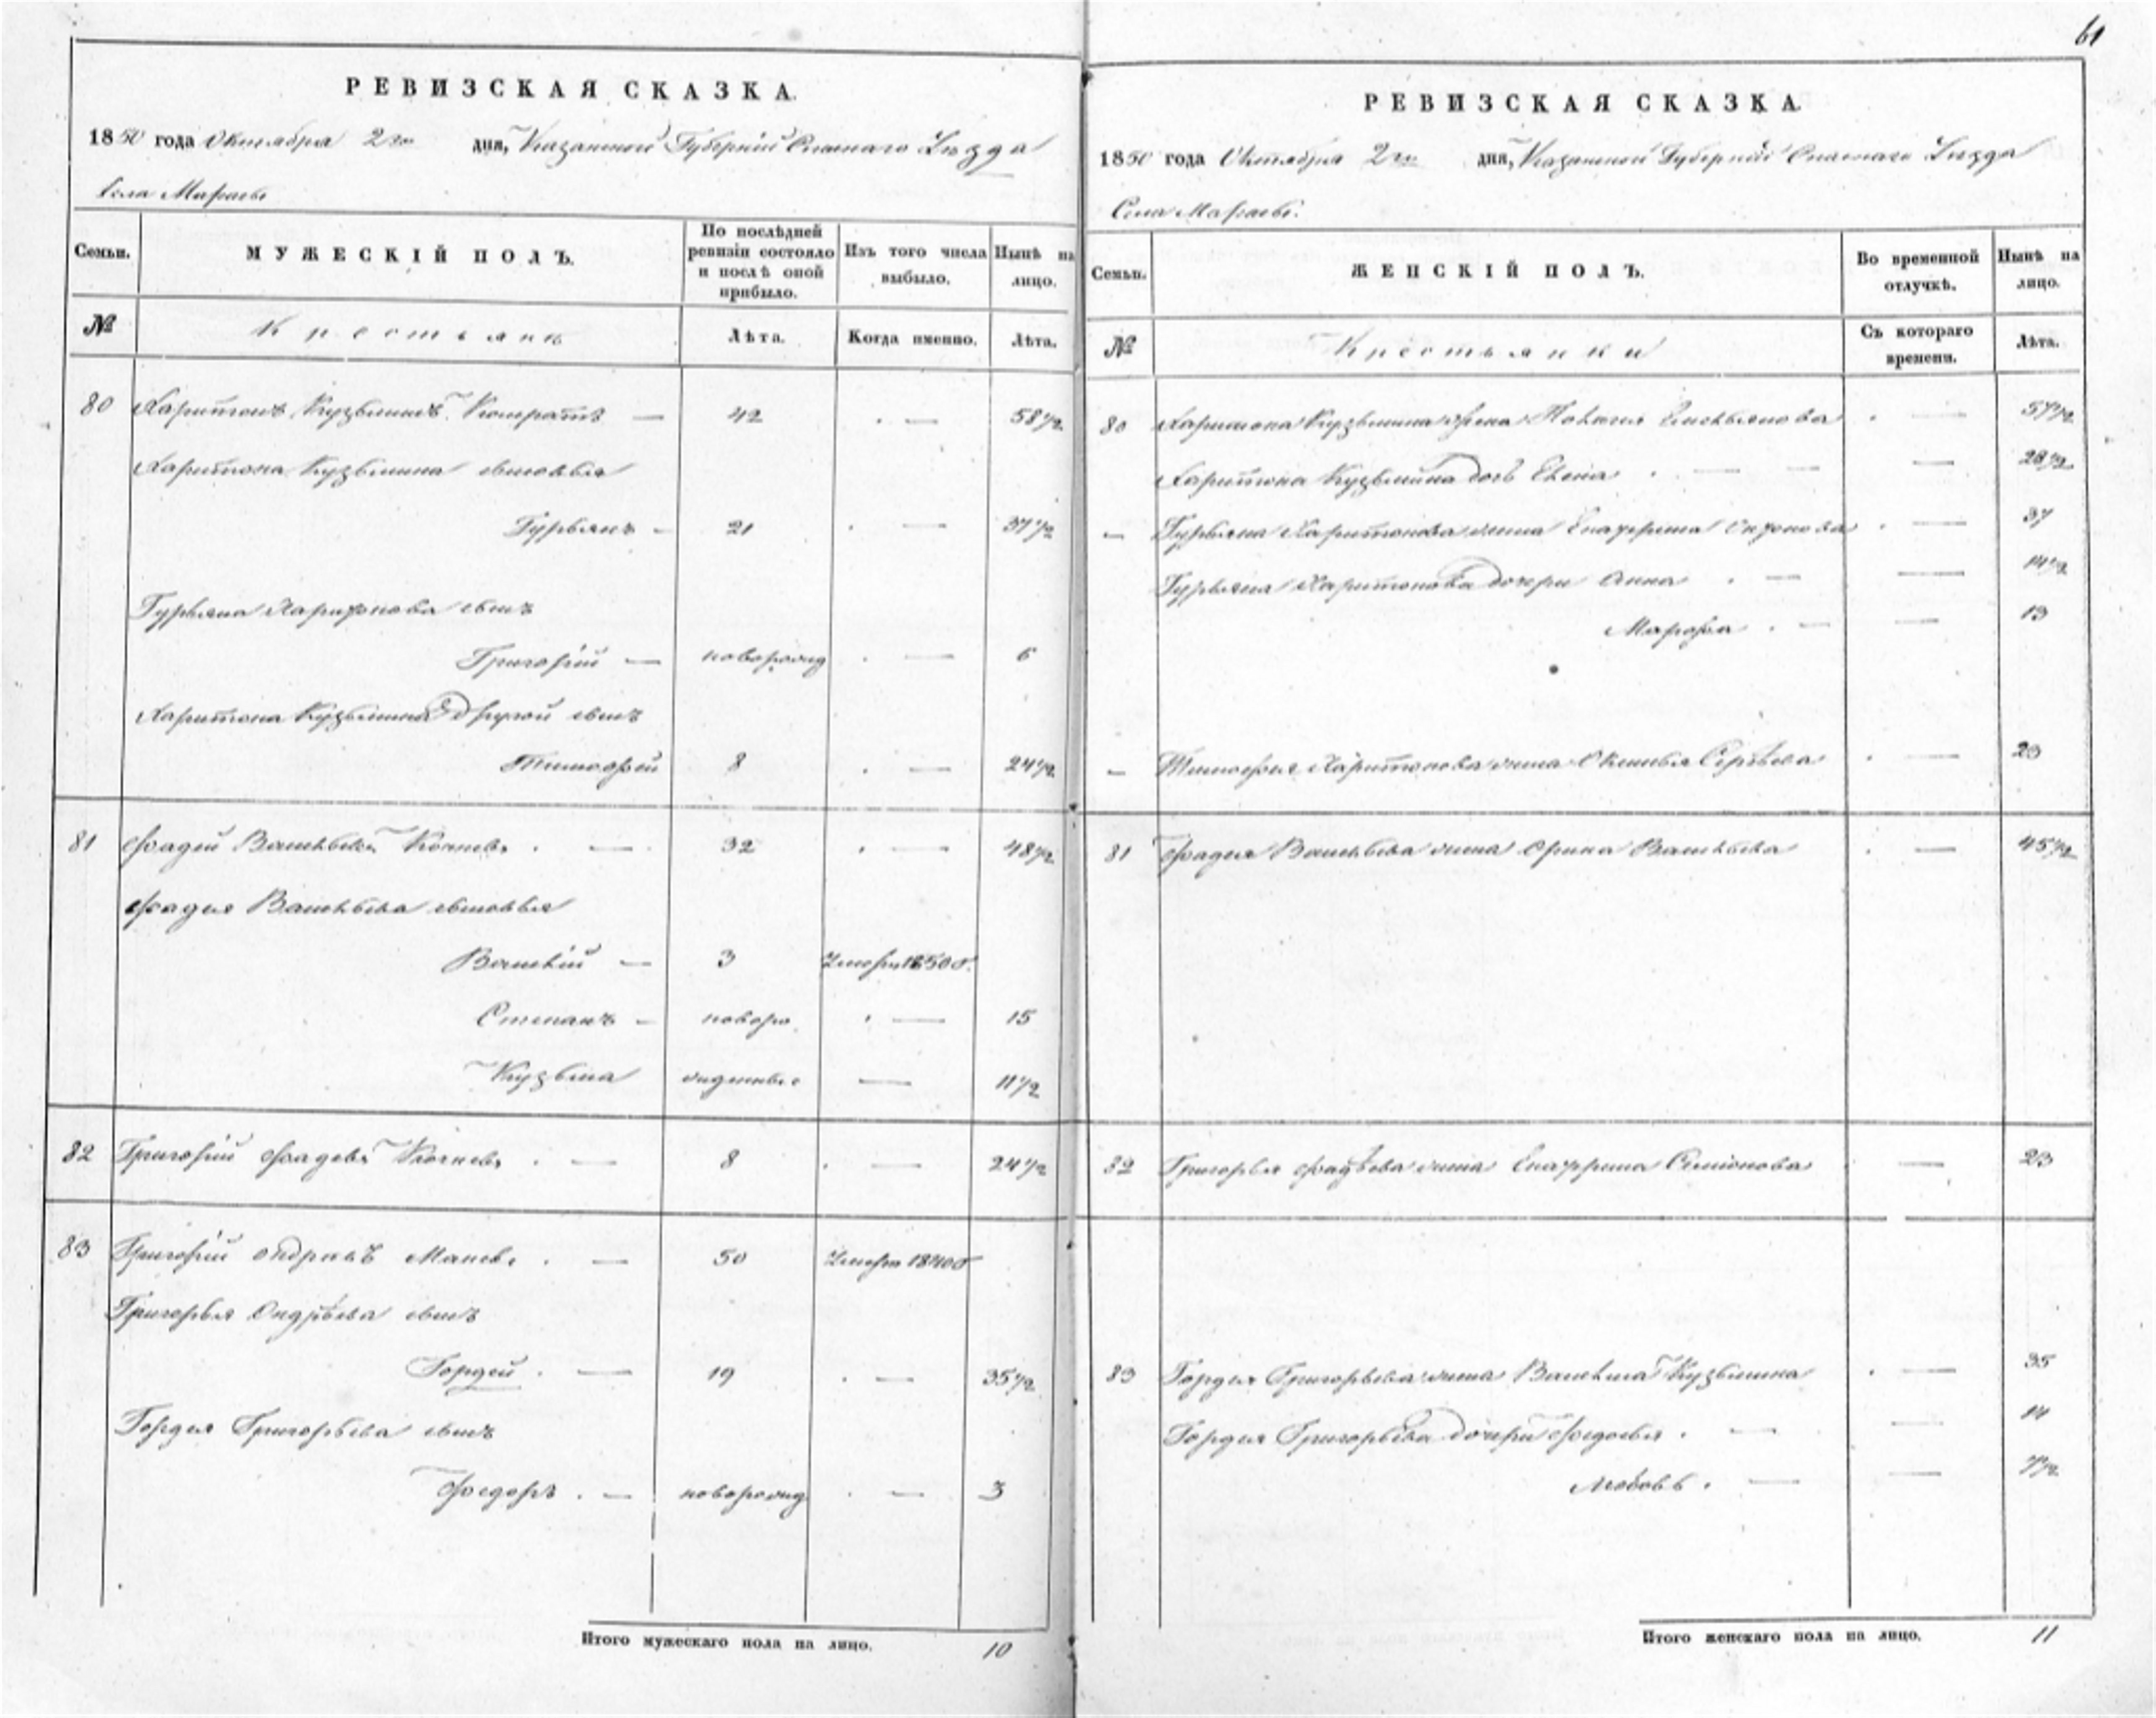 61
РЕВИЗСКАЯ СКАЗКА.
1850 года Октября 2го дня, Казанской Губерніи Спаскаго Уѣзда
Села
Семьи.
МУЖЕСКІЙ ПОЛЪ.
По послѣдней ревизіи состояло и послѣ оной прибыло.
Изъ того числа выбыло.
Нынѣ на лицо.
№
Крестьянѣ
Лѣта.
Когда именно.
Лѣта.
80 Харитонъ Кузьминъ — 42 . — 58 1/2
Харитона Кузьмина сыновья
Гурьянъ — 21 . — 37 1/2
Гурьяна Харитонова сынъ
Григорій — новорожд . — 6
Харитона Кузьмина другой сынъ
Тимофей 8 . — 24 1/2
81 Фадей Васильевъ . — 32 . — 48 1/2
Фадея Васильева сыновья
Василій — 3 1850 г.
Степанъ — новоро . — 15
Кузьма жденные — 11 1/2
82 Григорій Фадеевъ . — 8 . — 24 1/2
83 Григорій Маневъ . — 50
Григорья Андрѣева сынъ
Гордей . — 19 . — 35 1/2
Гордея Григорьева сынъ
Федоръ . — новорожд . — 3
Итого мужескаго пола на лицо. 10
РЕВИЗСКАЯ СКАЗКА.
1850 года Октября 2го дня, Казанской Губерніи Спаскаго Уѣзда
Села
Семьи.
ЖЕНСКІЙ ПОЛЪ.
Во временной отлучкѣ.
Нынѣ на лицо.
№
Крестьянки
Съ котораго времени.
Лѣта.
80 Харитона Кузьмина жена . — 57 1/2
Харитона Кузьмина дочь Елена . — — — 28 1/2
— Гурьяна Харитонова жена Екатерина . — 37
Гурьяна Харитонова дочери Анна . — — 14 1/2
Марфа . — — 13
— Тимофея Харитонова жена . — 23
81 Фадея Васильева жена Орина Васильева . — 45 1/2
82 Григорья Фадѣева жена Екатерина — 23
83 Гордея Григорьева жена Кузьмина . — 35
Гордея Григорьева дочери Федосья . — — 14
Любовь . — — 7 1/2
Итого женскаго пола на лицо. 11